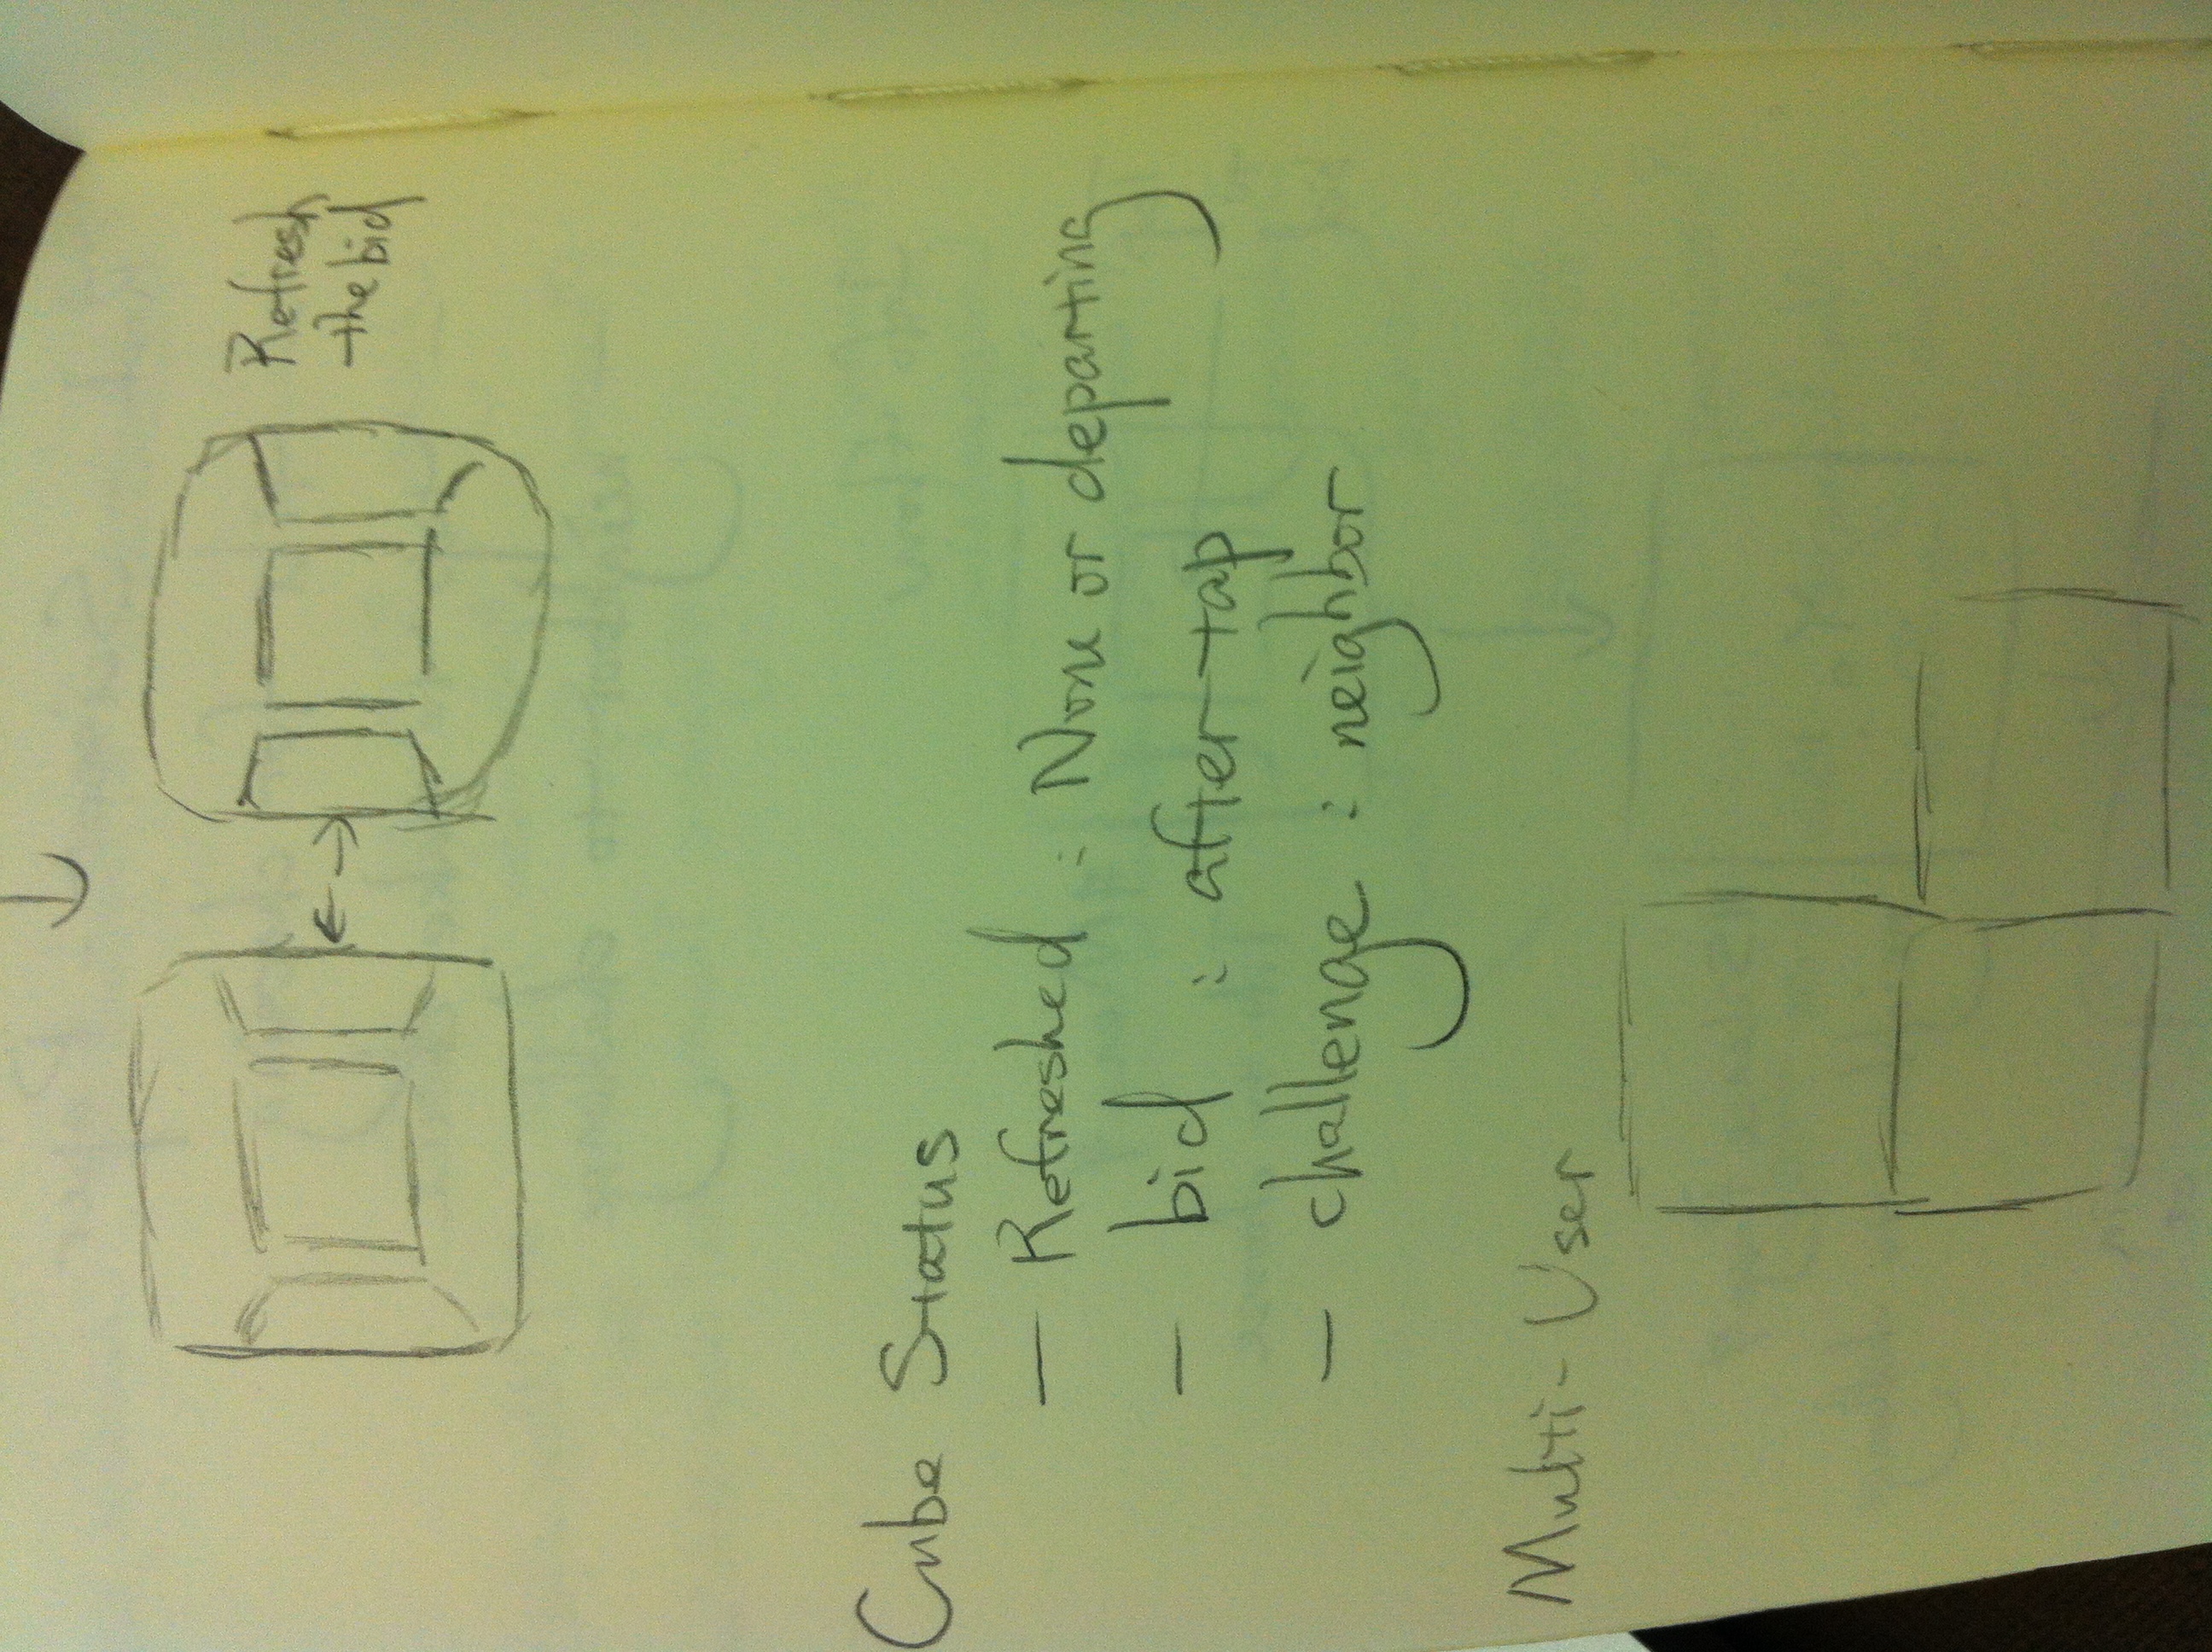 Refresh
the bid
Cube Status
- Refreshed : None or departing
- bid : after tap
- challenge : neighbor
Multi-User